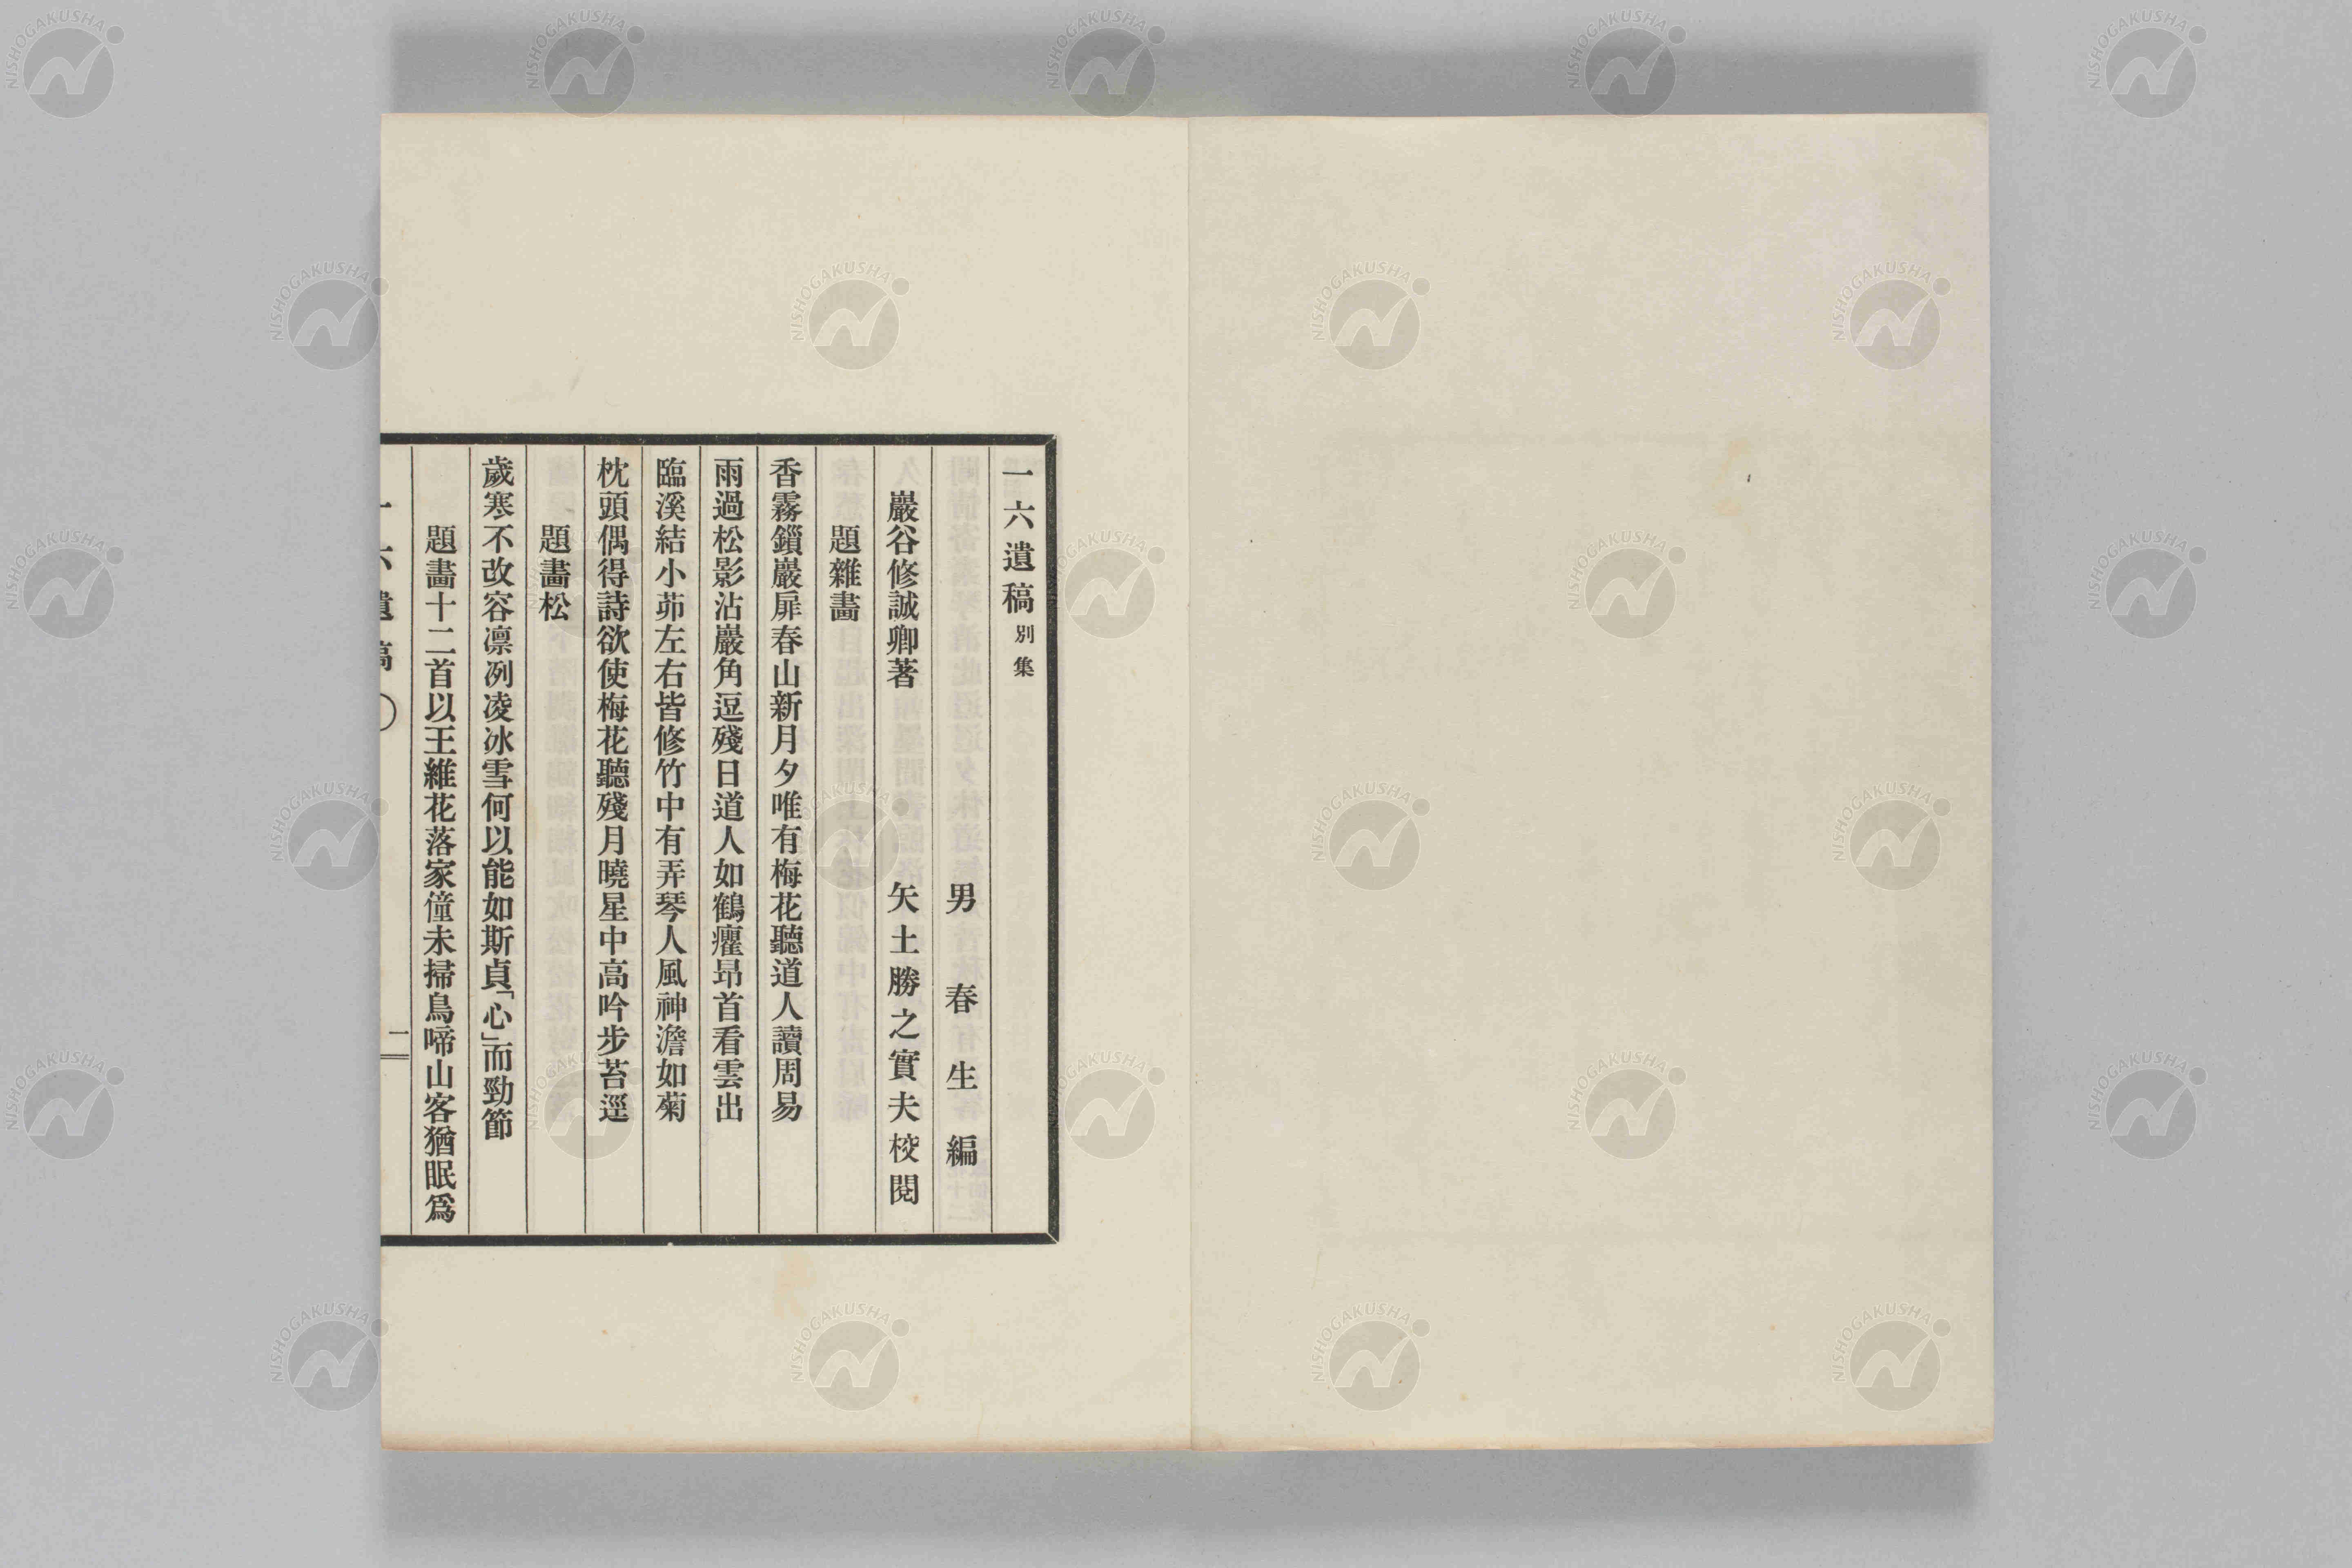 一六遺稿別集
男春生編
巖谷修誠卿著 矢土勝之實夫校閱
題雜畵
香霧鎻巖扉春山新月夕唯有梅花聽道人讀周易
雨過松影沾巖角逗殘日道人如鶴癯昻首看雲出
臨溪結小茆左右皆修竹中有弄琴人風神澹如菊
枕頭偶得詩欲使梅花聽殘月曉星中高吟步苔逕
題畵松
歲寒不改容凛冽凌冰雪何以能如斯貞「心」而勁節
題畵十二首以王維花落家僮未掃鳥啼山客猶眠爲
一六遺稿
一
NISHOGAKUSHA